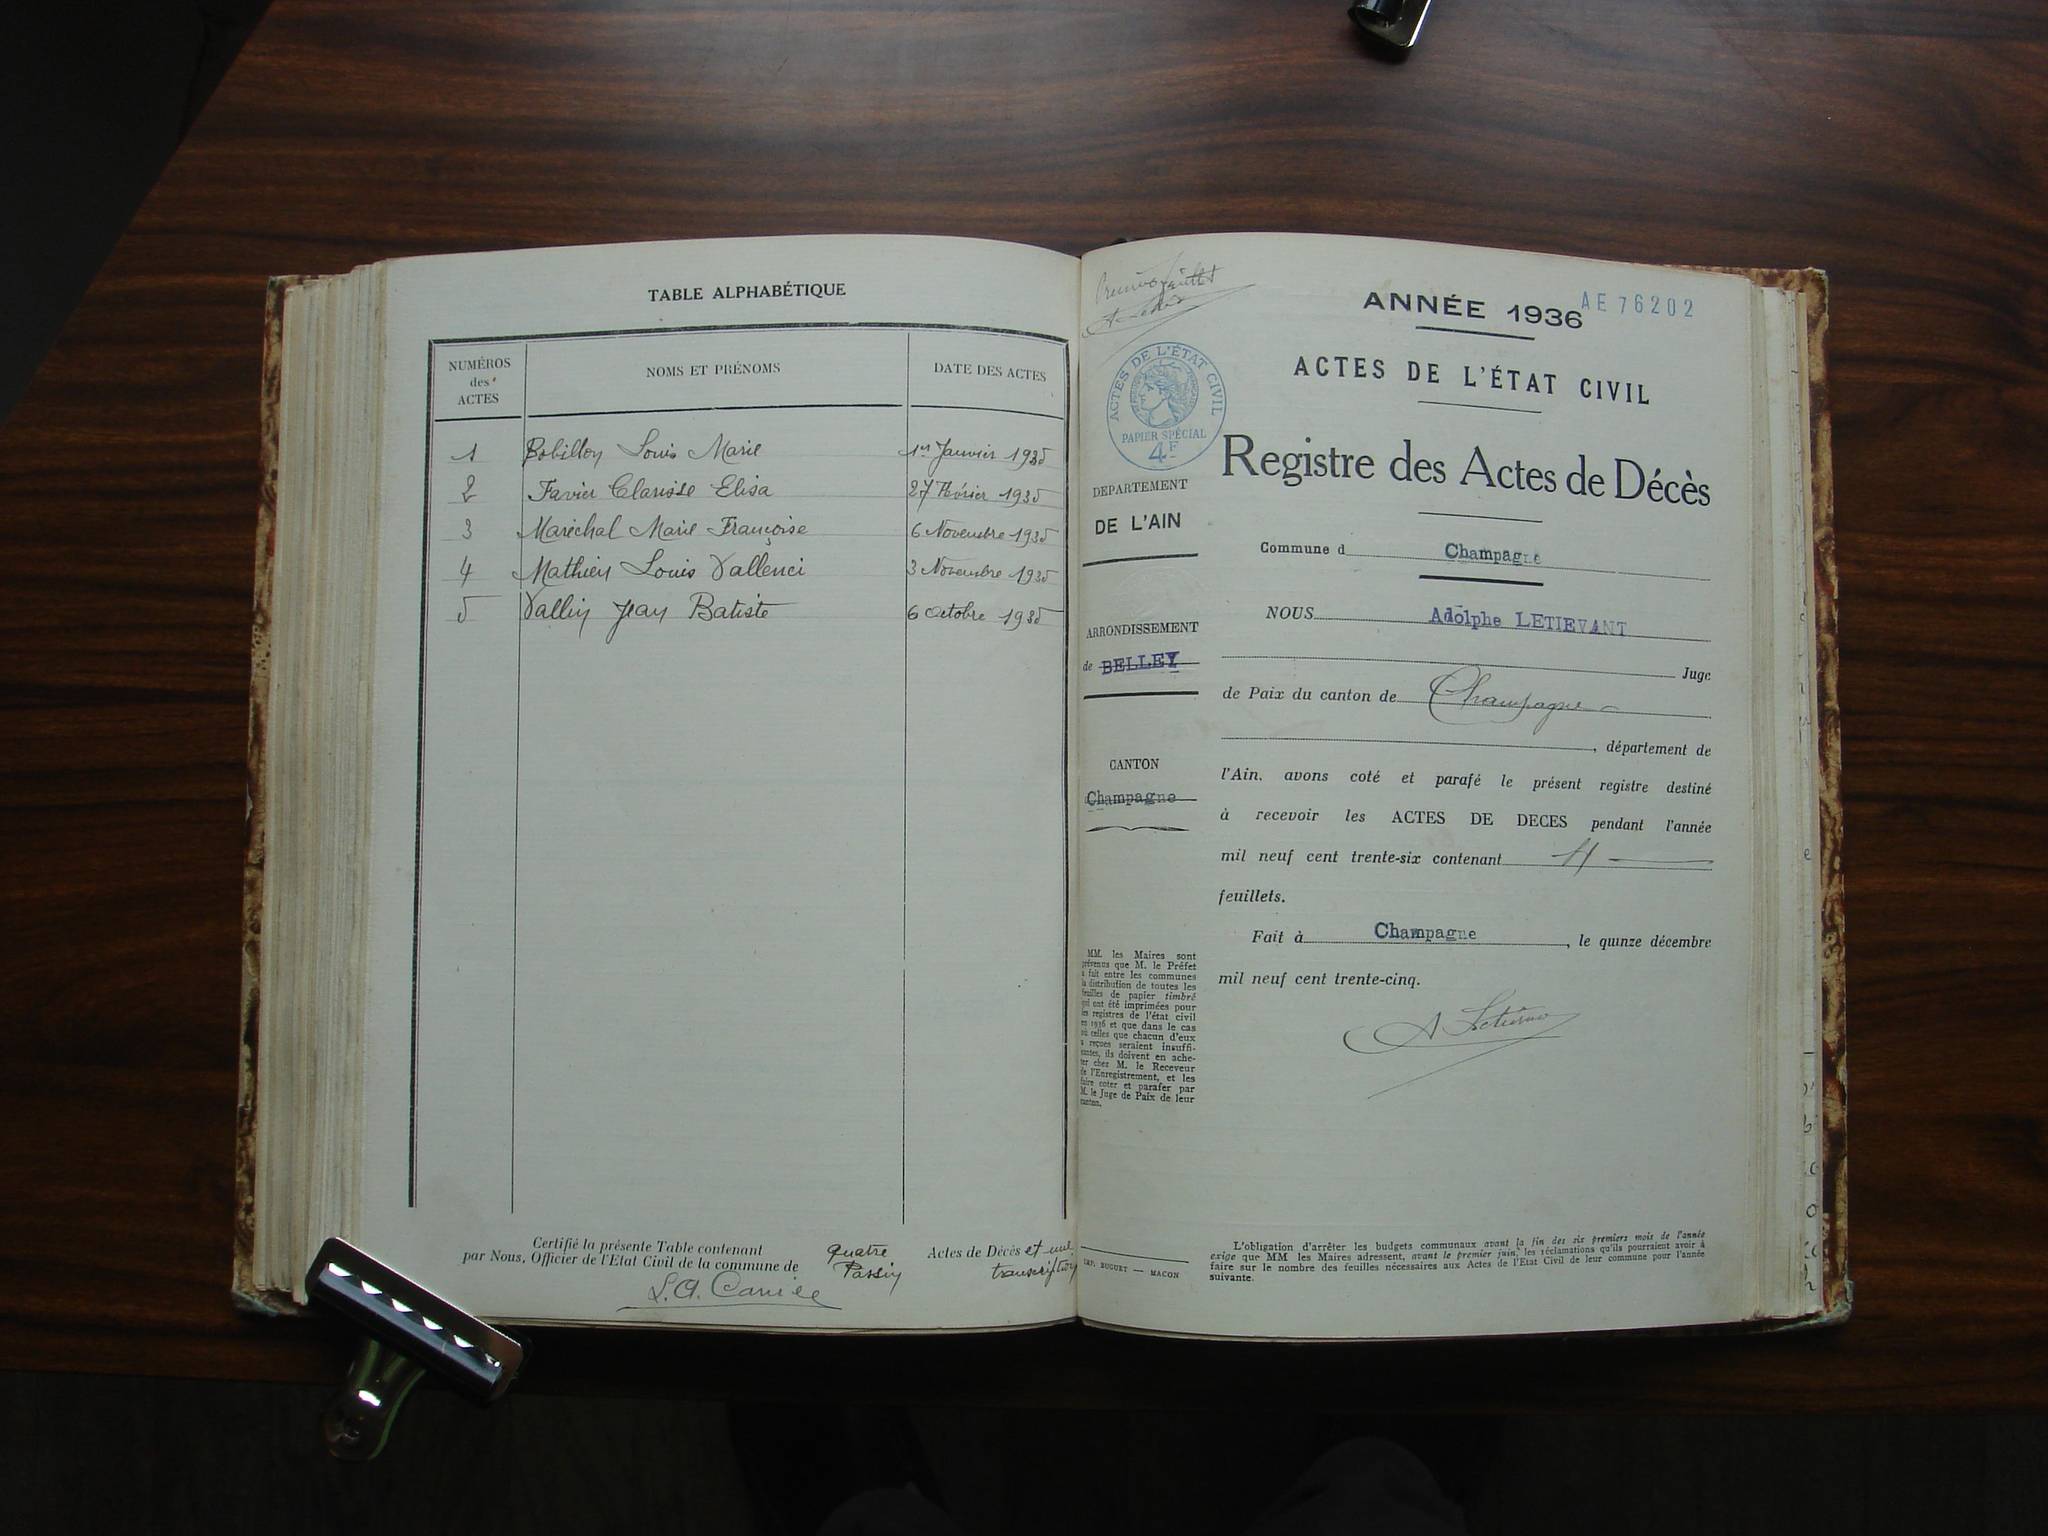 TABLE ALPHABÉTIQUE
NUMÉROS des ACTES
NOMS ET PRÉNOMS
DATE DES ACTES
1 Bobillon Louis Marie 1er Janvier 1935
2 Favier Clarisse Elisa 27 Février 1935
3 Maréchal Marie Françoise 6 Novembre 1935
4 Mathieu Louis Vallenci 3 Novembre 1935
5 Vallin Jean Batiste 6 Octobre 1935
Certifié la présente Table contenant quatre Actes de Décès et une transcription
par Nous, Officier de l'Etat Civil de la commune de Passin
Premier feuillet
ANNÉE 1936
AE 76202
ACTES DE L'ÉTAT CIVIL
Registre des Actes de Décès
ACTES DE L'ÉTAT CIVIL
PAPIER SPÉCIAL
4F
DEPARTEMENT
DE L'AIN
ARRONDISSEMENT
de BELLEY
CANTON
Champagne
MM. les Maires sont
prévenus que M. le Préfet
a fait entre les communes
la distribution de toutes les
feuilles de papier timbré
qui ont été imprimées pour
les registres de l'état civil
en 1936 et que dans le cas
où celles que chacun d'eux
a reçues seraient insuffi-
santes, ils doivent en ache-
ter chez M. le Receveur
de l'Enregistrement, et les
faire coter et parafer par
M. le Juge de Paix de leur
canton.
IMP. BUGUET — MACON
Commune d Champagne
NOUS Adolphe LETIEVANT
Juge
de Paix du canton de Champagne
, département de
l'Ain. avons coté et parafé le présent registre destiné
à recevoir les ACTES DE DECES pendant l'année
mil neuf cent trente-six contenant
feuillets.
Fait à Champagne, le quinze décembre
mil neuf cent trente-cinq.
L'obligation d'arrêter les budgets communaux avant la fin des six premiers mois de l'année
exige que MM les Maires adressent, avant le premier juin, les réclamations qu'ils pourraient avoir à
faire sur le nombre des feuilles nécessaires aux Actes de l'Etat Civil de leur commune pour l'année
suivante.